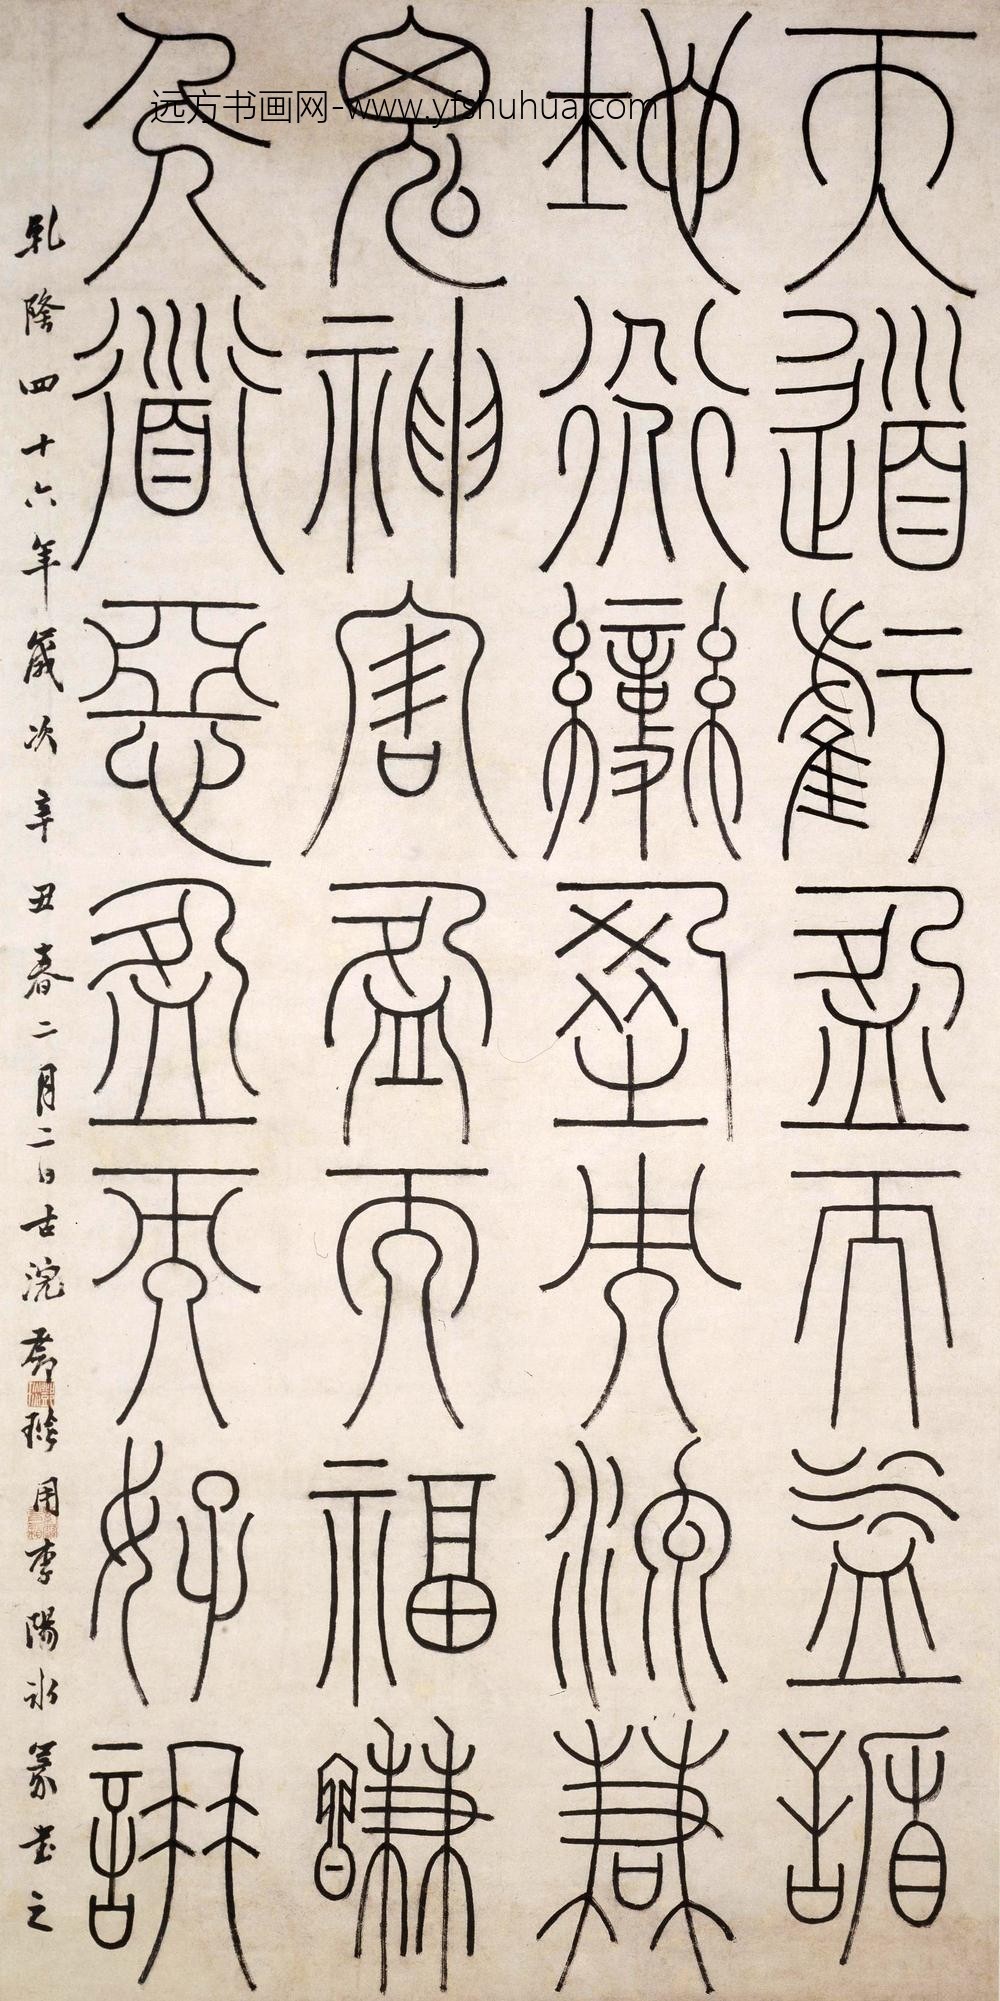 天道虧盈而益謙
地道變盈而流謙
鬼神害盈而福謙
人道惡盈而好謙
乾隆四十六年歲次辛丑春二月二日古浣鄧琰用李陽冰篆書之
远方书画网-www.yfshuhua.com